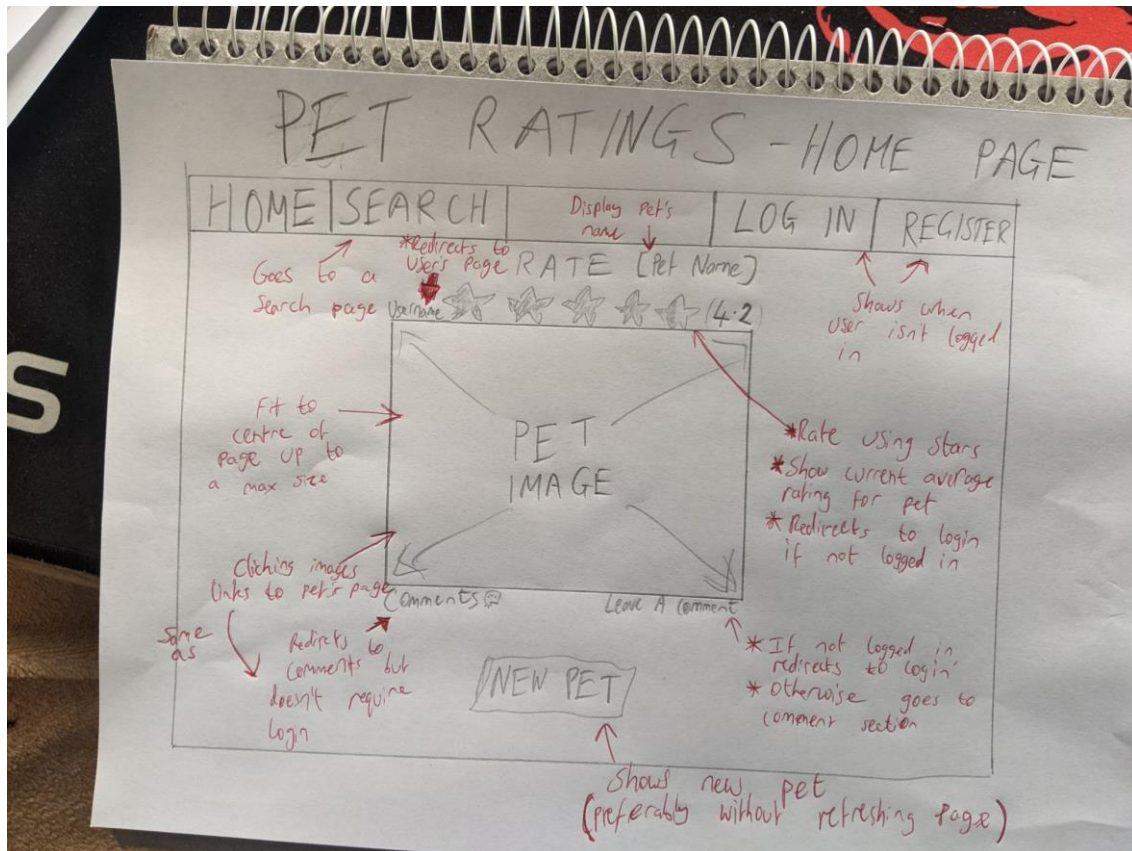 PET RATINGS - HOME PAGE
HOME
SEARCH
Display Pet's
name
LOG IN
REGISTER
Goes to a
search page
*Redirects to
user's page
RATE [Pet Name]
Username
(4.2)
Shows when
user isn't logged
in
S
Fit to
centre of
page up to
a max size
PET
IMAGE
*Rate using stars
*Show current average
rating for pet
*Redirects to login
if not logged in
Clicking images
links to pet's page
Comments
Leave A comment
Same
as
Redirects to
comments but
doesn't require
login
NEW PET
*If not logged in
redirects to login
*Otherwise goes to
comment section
Shows new pet
(preferably without refreshing page)